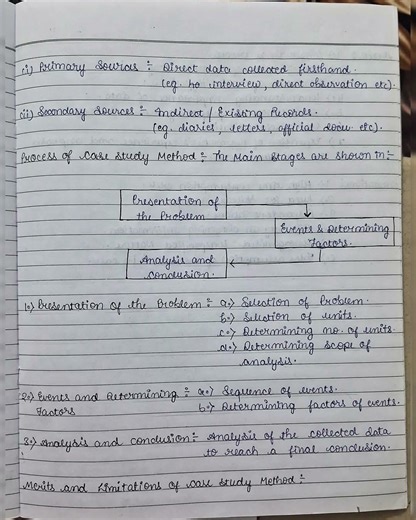 (i) Primary Sources :- Direct data collected firsthand.
(eg. interview, direct observation etc).
(ii) Secondary Sources :- Indirect / Existing Records.
(eg. diaries, letters, official docu. etc).
Process of Case Study Method :- The Main Stages are shown in :-
Presentation of
the Problem
Events & Determining
Factors.
Analysis and
Conclusion.
1.) Presentation of the Problem :- a.) Selection of Problem.
b.) Selection of units.
c.) Determining no. of units.
d.) Determining scope of
analysis.
2.) Events and Determining :- a.) Sequence of events.
Factors b.) Determining factors of events.
3.) Analysis and conclusion :- Analysis of the collected data
to reach a final conclusion.
Merits and Limitations of Case Study Method :-